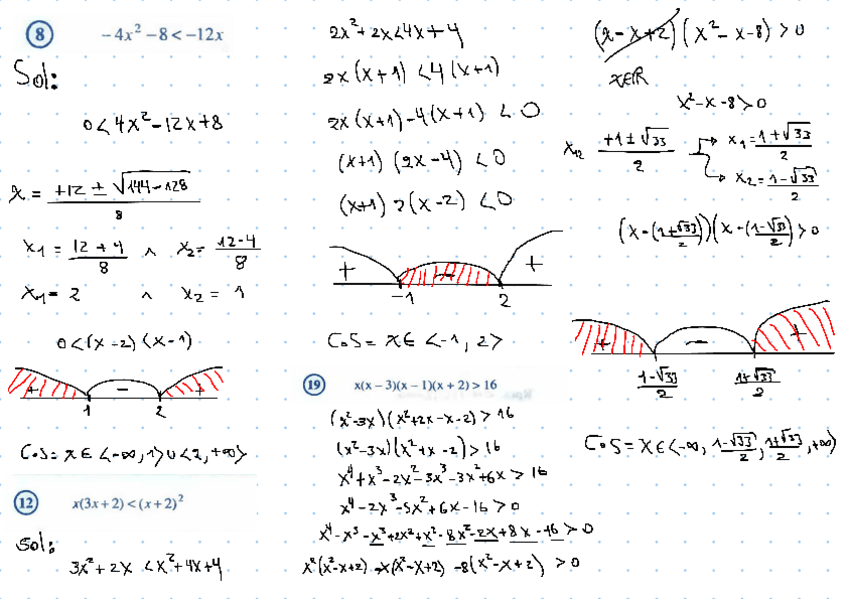 8 -4x² -8 < -12x
Sol:
0 < 4x² - 12x + 8
x = +12 ± √144-128 / 8
x1 = 12 + 4 / 8 ∧ x2 = 12-4 / 8
x1 = 2 ∧ x2 = 1
0 < (x -2) (x -1)
+ - +
1 2
C.S = x ∈ <-∞, 1> ∪ <2, +∞>
12 x(3x + 2) < (x + 2)²
Sol:
3x² + 2x < x² + 4x + 4
2x² + 2x < 4x + 4
2x (x + 1) < 4 (x + 1)
2x (x + 1) - 4 (x + 1) < 0
(x+1) (2x - 4) < 0
(x+1) 2 (x - 2) < 0
+ - +
-1 2
C.S = x ∈ <-1, 2>
19 x(x - 3)(x - 1)(x + 2) > 16
(x² -3x) (x² +2x -x -2) > 16
(x² -3x) (x² + x -2) > 16
x⁴ + x³ - 2x² - 3x³ - 3x² + 6x > 16
x⁴ - 2x³ - 5x² + 6x - 16 > 0
x⁴ - x³ - x³ + 2x² + x² - 8x² - 2x + 8x - 16 > 0
x² (x² - x + 2) - x(x² - x + 2) - 8 (x² - x + 2) > 0
(x - x + 2) (x² - x - 8) > 0
x∈R
x² - x - 8 > 0
x12 +1 ± √33 / 2 x1 = 1 + √33 / 2
x2 = 1 - √33 / 2
(x - (1+√33 / 2)) (x - (1-√33 / 2) > 0
+ - +
1-√33 / 2 1+√33 / 2
C.S = x ∈ <-∞, 1-√33 / 2, 1+√33 / 2, +∞>